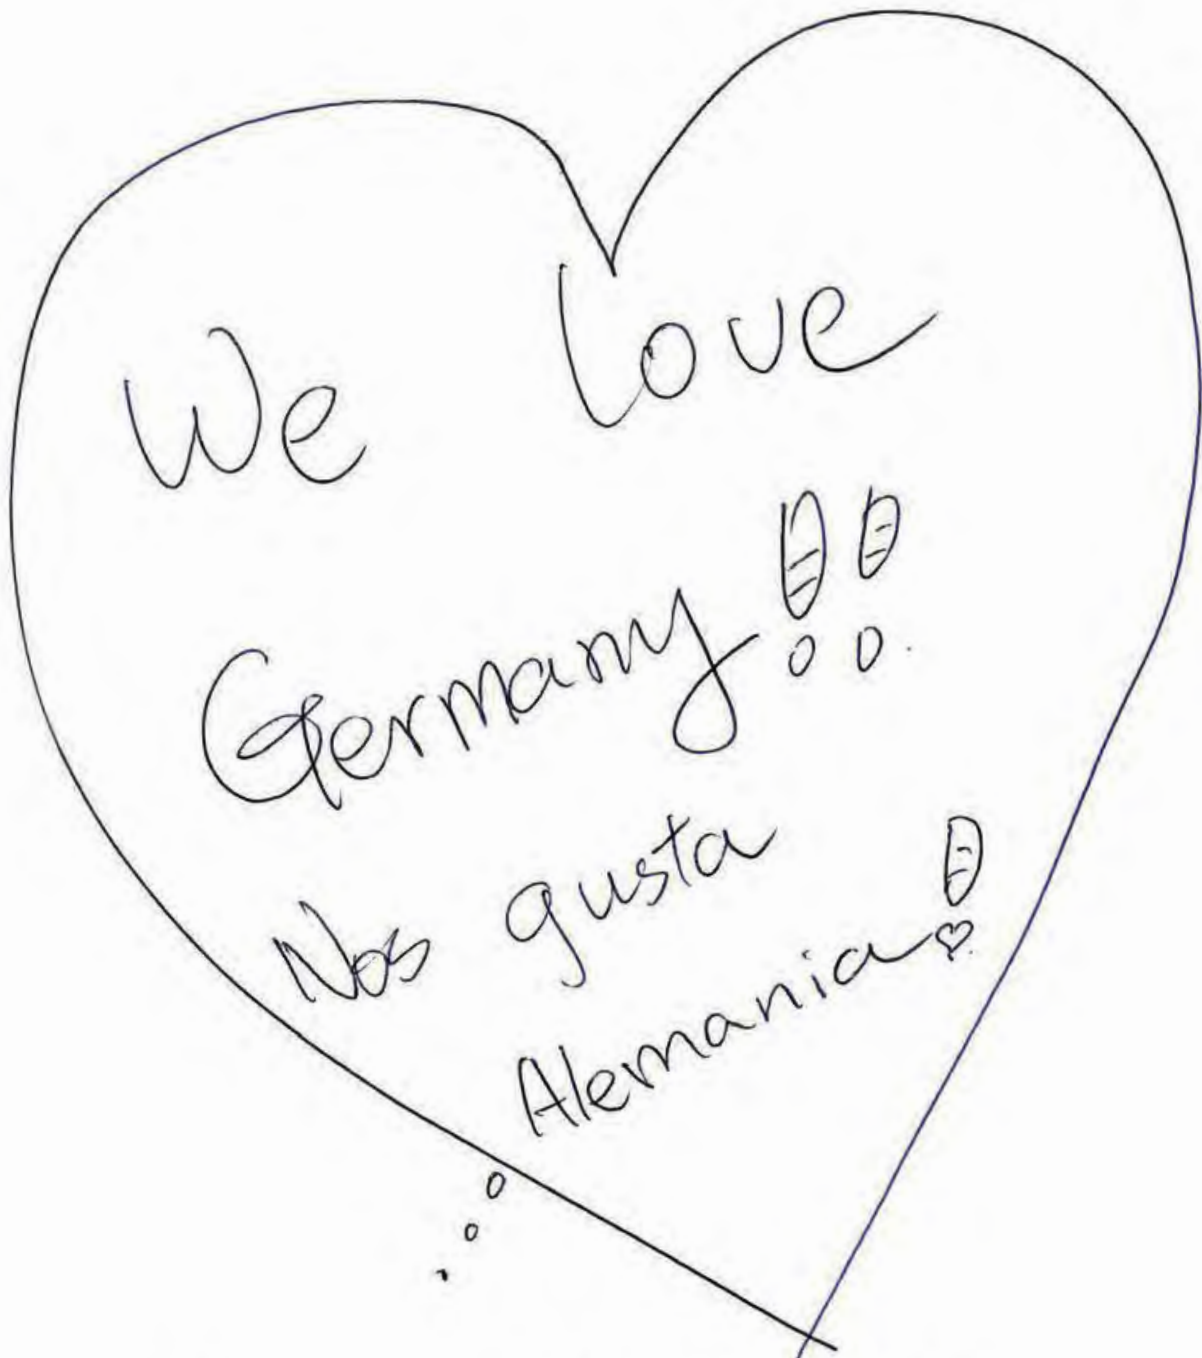 We love
Germany!!
Nos gusta
Alemania!